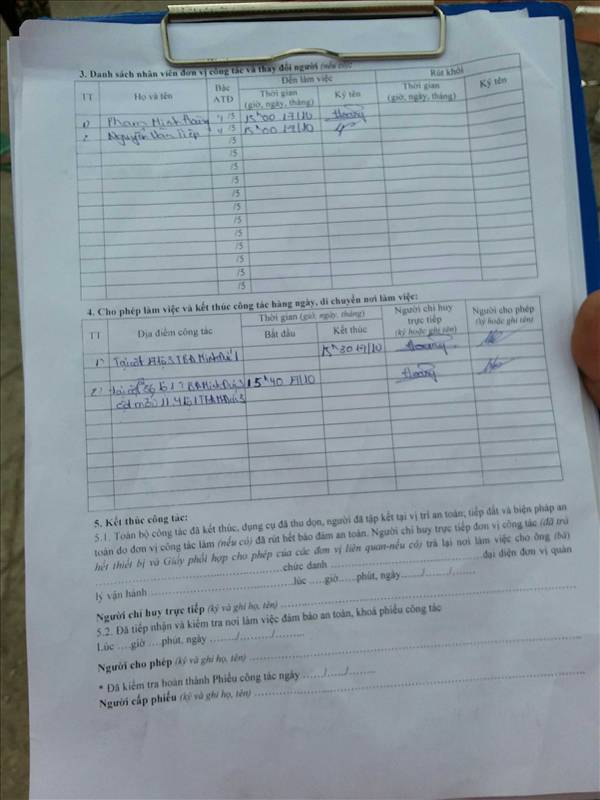 3. Danh sách nhân viên đơn vị công tác và thay đổi người (nếu có):
TT Họ và tên Bậc ATĐ Đến làm việc Rút khỏi
Thời gian (giờ, ngày, tháng) Ký tên Thời gian (giờ, ngày, tháng) Ký tên
1) Phạm Minh Hoàng 4/5 15h00 17/10 Hoàng
2 Nguyễn Văn Tiếp 4/5 15h00 17/10
/5
/5
/5
/5
/5
/5
/5
/5
/5
/5
/5
/5
4. Cho phép làm việc và kết thúc công tác hàng ngày, di chuyển nơi làm việc:
TT Địa điểm công tác Thời gian (giờ, ngày, tháng) Người chỉ huy trực tiếp (ký hoặc ghi tên) Người cho phép (ký hoặc ghi tên)
Bắt đầu Kết thúc
1) Tại cột 15h30 17/10 Hoàng
2) 15h40 17/10 Hoàng
5. Kết thúc công tác:
5.1. Toàn bộ công tác đã kết thúc, dụng cụ đã thu dọn, người đã tập kết tại vị trí an toàn; tiếp đất và biện pháp an
toàn do đơn vị công tác làm (nếu có) đã rút hết bảo đảm an toàn. Người chỉ huy trực tiếp đơn vị công tác (đã trả
hết thiết bị và Giấy phối hợp cho phép của các đơn vị liên quan-nếu có) trả lại nơi làm việc cho ông (bà)
........................chức danh ........................đại diện đơn vị quản
lý vận hành ........................lúc .....giờ.....phút, ngày....../....../......
Người chỉ huy trực tiếp (ký và ghi họ, tên) ........................
5.2. Đã tiếp nhận và kiểm tra nơi làm việc đảm bảo an toàn, khoá phiếu công tác
Lúc ....giờ ....phút, ngày ......./........./.........
Người cho phép (ký và ghi họ, tên) ........................
* Đã kiểm tra hoàn thành Phiếu công tác ngày ....../....../......
Người cấp phiếu (ký và ghi họ, tên) ........................